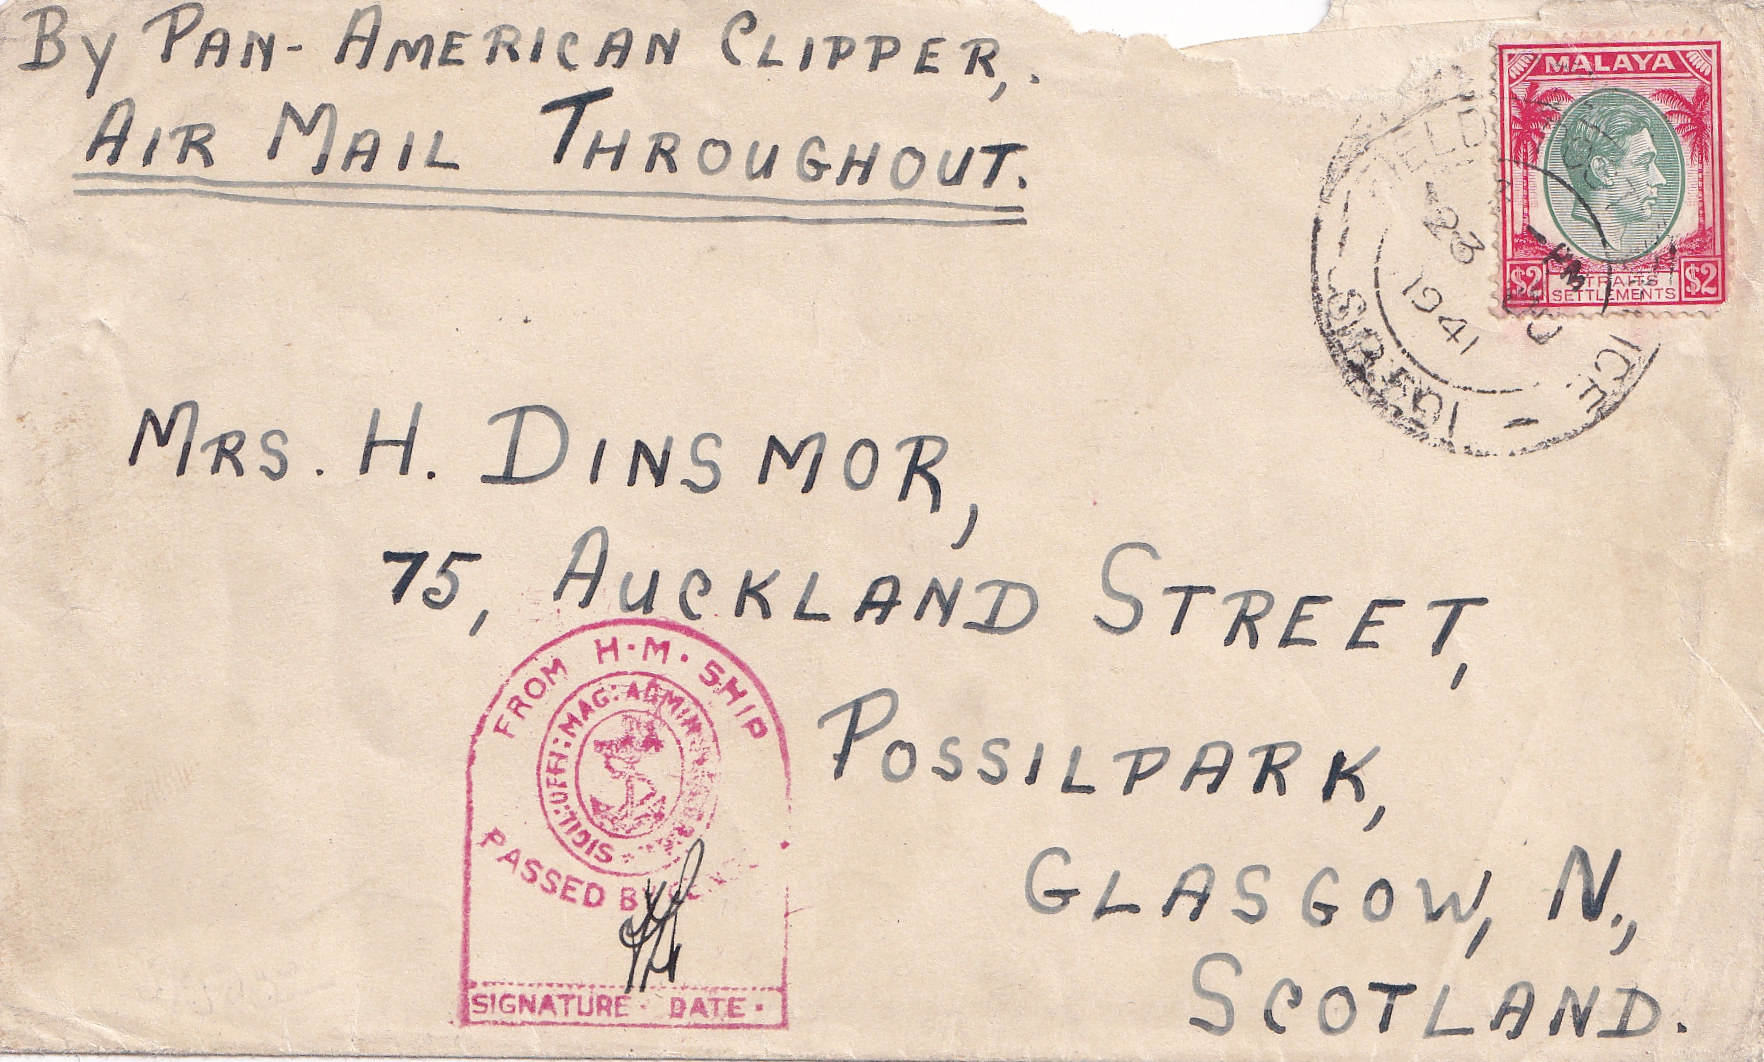 By PAN-AMERICAN CLIPPER,.
AIR MAIL THROUGHOUT.
MALAYA
$2
STRAITS
SETTLEMENTS
$2
FIELD
ICE
23
1941
MRS. H. DINSMOR,
75, AUCKLAND STREET,
POSSILPARK,
GLASGOW, N.,
SCOTLAND.
FROM H·M·SHIP
SIGIL:OFFI:MAG:ADMIN
PASSED BY
SIGNATURE· DATE·